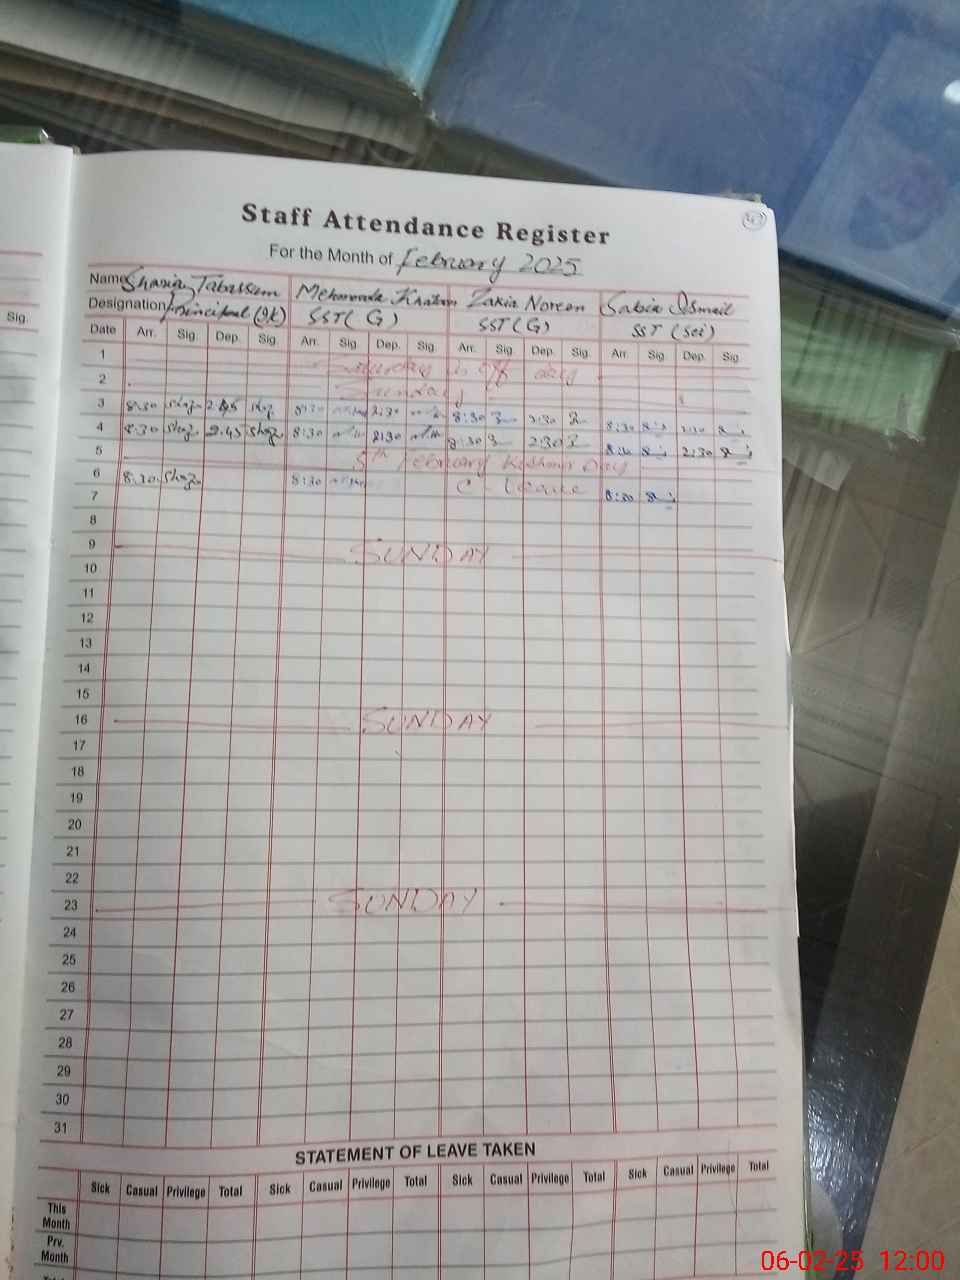 42
Staff Attendance Register
For the Month of February 2025
Sig.
Name Shazia Tabassum Khatoon Zakia Noreen Sabia Ismail
Designation Principal SST (G) SST (G) SST (Sci)
Date Arr. Sig. Dep. Sig. Arr. Sig. Dep. Sig. Arr. Sig. Dep. Sig. Arr. Sig. Dep. Sig.
1 Saturday is off day
2 Sunday
3 8:30 Shaz 2:45 Shaz 8:30 2:30 8:30 2:30 8:30 2:30
4 8:30 Shaz 2:45 Shaz 8:30 2:30 8:30 2:30 8:30 2:30
5 5th February Kashmir Day
6 8:30 Shaz 8:30 C-leave 8:30
7
8
9 SUNDAY
10
11
12
13
14
15
16 SUNDAY
17
18
19
20
21
22
23 SUNDAY
24
25
26
27
28
29
30
31
STATEMENT OF LEAVE TAKEN
Sick Casual Privilege Total Sick Casual Privilege Total Sick Casual Privilege Total Sick Casual Privilege Total
This
Month
Prv.
Month
06-02-25 12:00